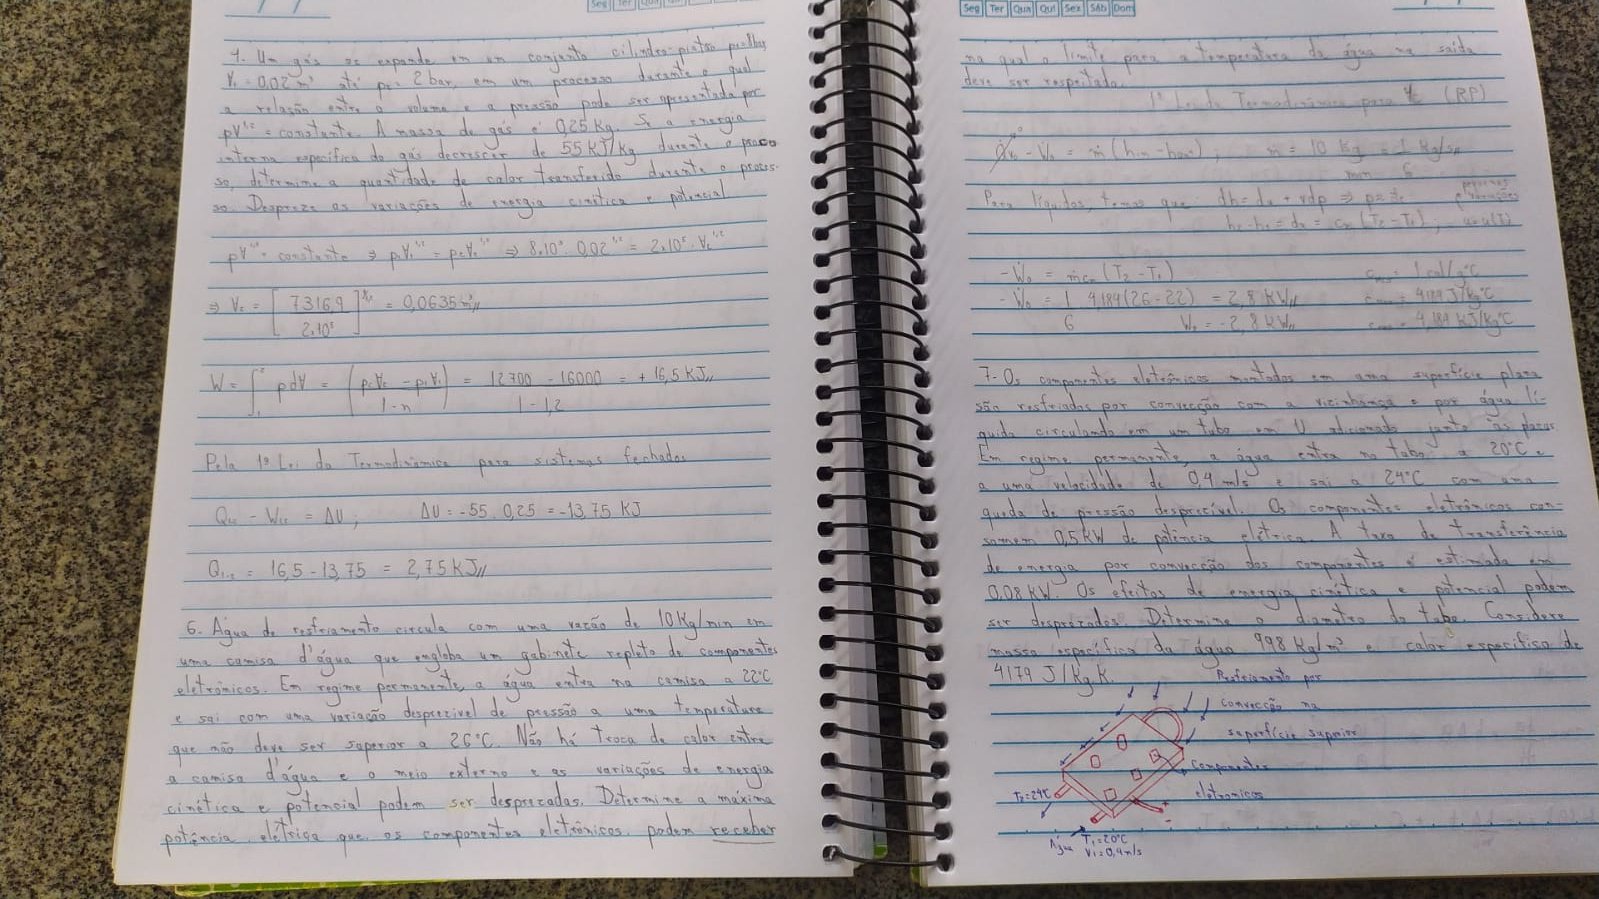 Seg Ter Qua Qui
1. Um gás se expande em um conjunto cilindro-pistão p1=8bar
V1=0,02 m³ até p2=2bar, em um processo durante o qual
a relação entre o volume e a pressão pode ser apresentada por
pV^1,2=constante. A massa de gás é 0,25Kg. Se a energia
interna específica do gás decrescer de 55KJ/Kg durante o proces-
so, determine a quantidade de calor transferido durante o proces-
so. Despreze as variações de energia cinética e potencial
pV^1,2=constante ⇒ p1V1^1,2 = p2V2^1,2 ⇒ 8.10⁵.0,02^1,2 = 2.10⁵.V2^1,2
⇒ V2 = [7316,9 / 2.10⁵]^1/1,2 = 0,0635m³//
W = ∫₁² pdV = (p2V2 - p1V1 / 1-n) = 12700 - 16000 / 1-1,2 = +16,5KJ//
Pela 1ª Lei da Termodinâmica para sistemas fechados
Q12 - W12 = ΔU; ΔU=-55.0,25=-13,75 KJ
Q1-2 = 16,5-13,75 = 2,75KJ//
6. Água de resfriamento circula com uma vazão de 10Kg/min em
uma camisa d'água que engloba um gabinete repleto de componentes
eletrônicos. Em regime permanente, a água entra na camisa a 22°C
e sai com uma variação desprezível de pressão a uma temperatura
que não deve ser superior a 26°C. Não há troca de calor entre
a camisa d'água e o meio externo e as variações de energia
cinética e potencial podem ser desprezadas. Determine a máxima
potência elétrica que os componentes eletrônicos podem receber
Seg Ter Qua Qui Sex Sáb Dom
na qual o limite para a temperatura da água na saída
deve ser respeitada.
1ª Lei da Termodinâmica para VC (RP)
- Ẇ = ṁ(h - h); ṁ = 10 kg/min = 1/6 Kg/s//
Para líquidos, temos que: dh = du + vdp ⇒ p= pequenas variações
h2-h1 = du = cm(T2-T1); u=u(T)
-Ẇ = ṁcm(T2-T1) c = 1cal/g°C
-Ẇ = 1/6 4184(26-22) = 2,8KW// c = 4184J/kg°C
Ẇ = -2,8KW// c = 4,184 KJ/Kg°C
7-Os componentes eletrônicos montados em uma superfície plana
são resfriados por convecção com a vizinhança e por água lí-
quida circulando em um tubo em U adicionado junto às placas
Em regime permanente, a água entra no tubo a 20°C e
a uma velocidade de 0,4m/s e sai a 24°C com uma
queda de pressão desprezível. Os componentes eletrônicos con-
somem 0,5KW de potência elétrica. A taxa de transferência
de energia por convecção dos componentes é estimada em
0,08KW. Os efeitos de energia cinética e potencial podem
ser desprezados. Determine o diâmetro do tubo. Considere
massa específica da água 998Kg/m³ e calor específico de
4179 J/KgK.
Resfriamento por
convecção na
superfície superior
componentes
eletrônicos
T2=24°C
+
-
Água T1=20°C
V1=0,4m/s